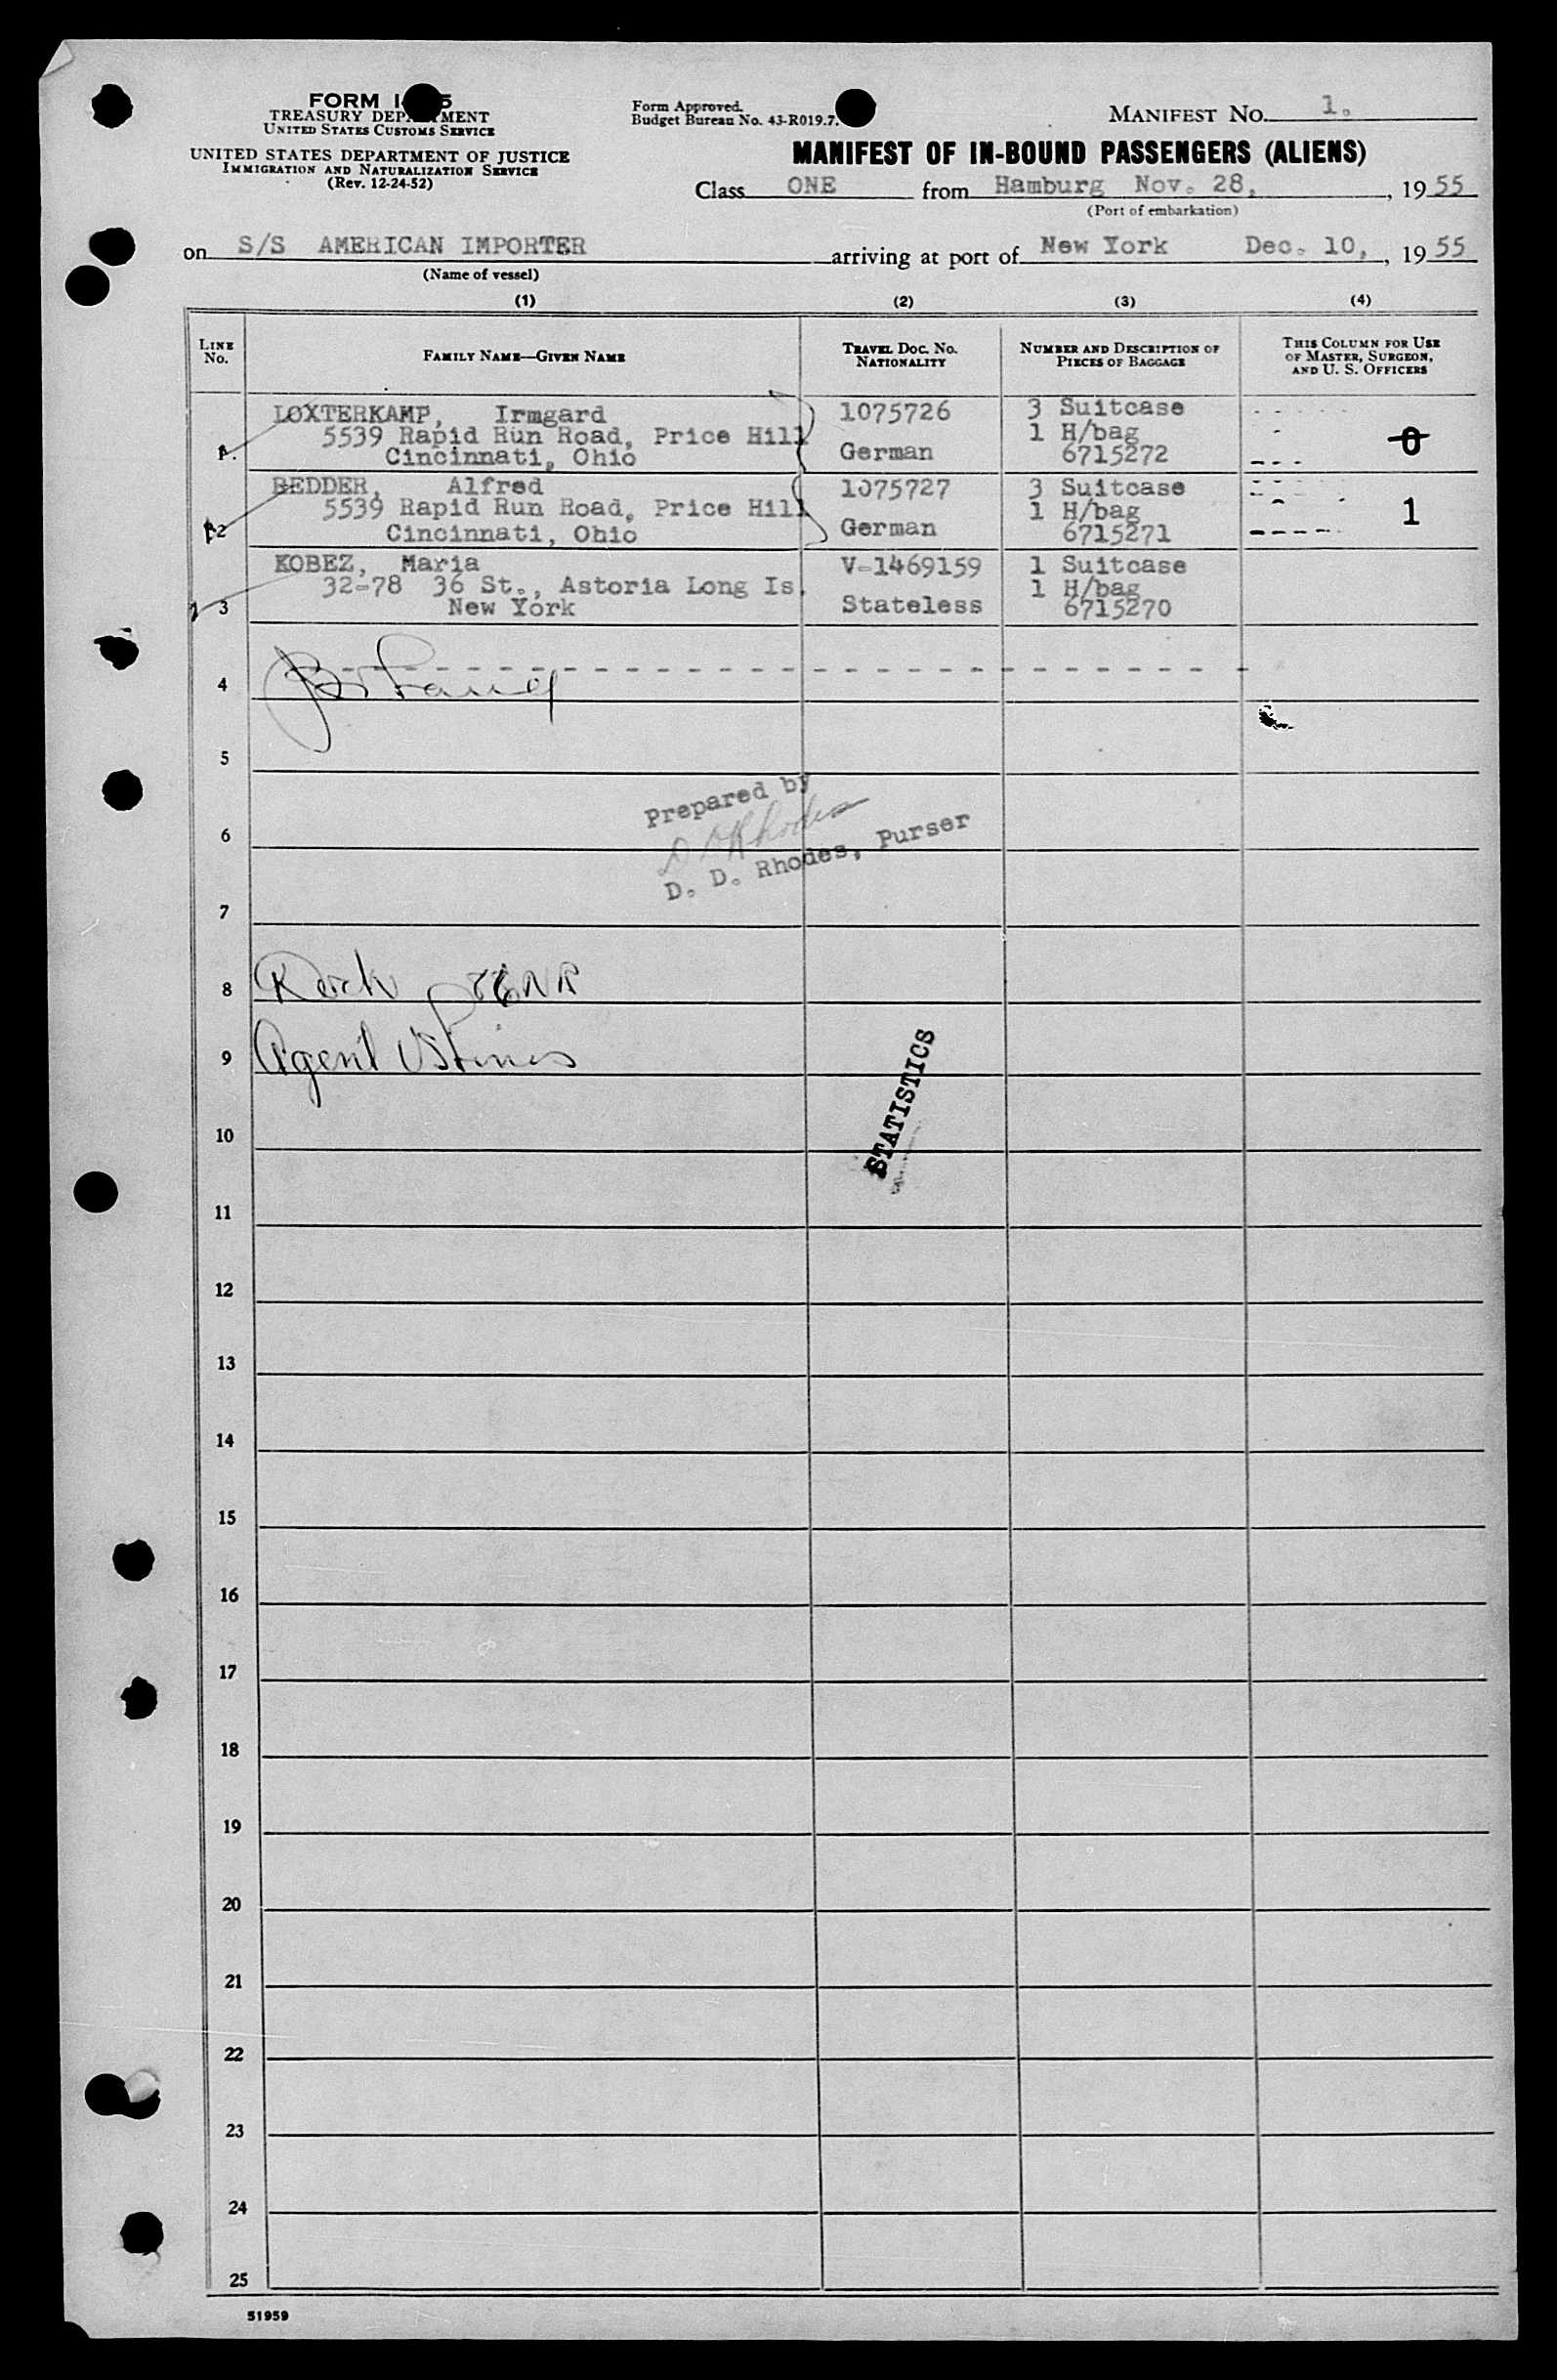 FORM I- 5
TREASURY DEP MENT
UNITED STATES CUSTOMS SERVICE
UNITED STATES DEPARTMENT OF JUSTICE
IMMIGRATION AND NATURALIZATION SERVICE
(Rev. 12-24-52)
Form Approved.
Budget Bureau No. 43-R019.7.
MANIFEST NO. 1.
MANIFEST OF IN-BOUND PASSENGERS (ALIENS)
Class ONE from Hamburg Nov. 28, , 19 55
(Port of embarkation)
on S/S AMERICAN IMPORTER arriving at port of New York Dec. 10, , 19 55
(Name of vessel)
(1) (2) (3) (4)
LINE No. FAMILY NAME—GIVEN NAME TRAVEL DOC. NO. NATIONALITY NUMBER AND DESCRIPTION OF PIECES OF BAGGAGE THIS COLUMN FOR USE OF MASTER, SURGEON, AND U. S. OFFICERS
LOXTERKAMP, Irmgard 1075726 3 Suitcase
5539 Rapid Run Road, Price Hill 1 H/bag 0
Cincinnati, Ohio German 6715272
BEDDER, Alfred 1075727 3 Suitcase
5539 Rapid Run Road, Price Hill 1 H/bag 1
2 Cincinnati, Ohio German 6715271
KOBEZ, Maria V-1469159 1 Suitcase
32-78 36 St., Astoria Long Is. 1 H/bag
3 New York Stateless 6715270
4
5
Prepared by
6
D D Rhodes
D. D. Rhodes, Purser
7
8
9 Agent
STATISTICS
10
11
12
13
14
15
16
17
18
19
20
21
22
23
24
25
51959